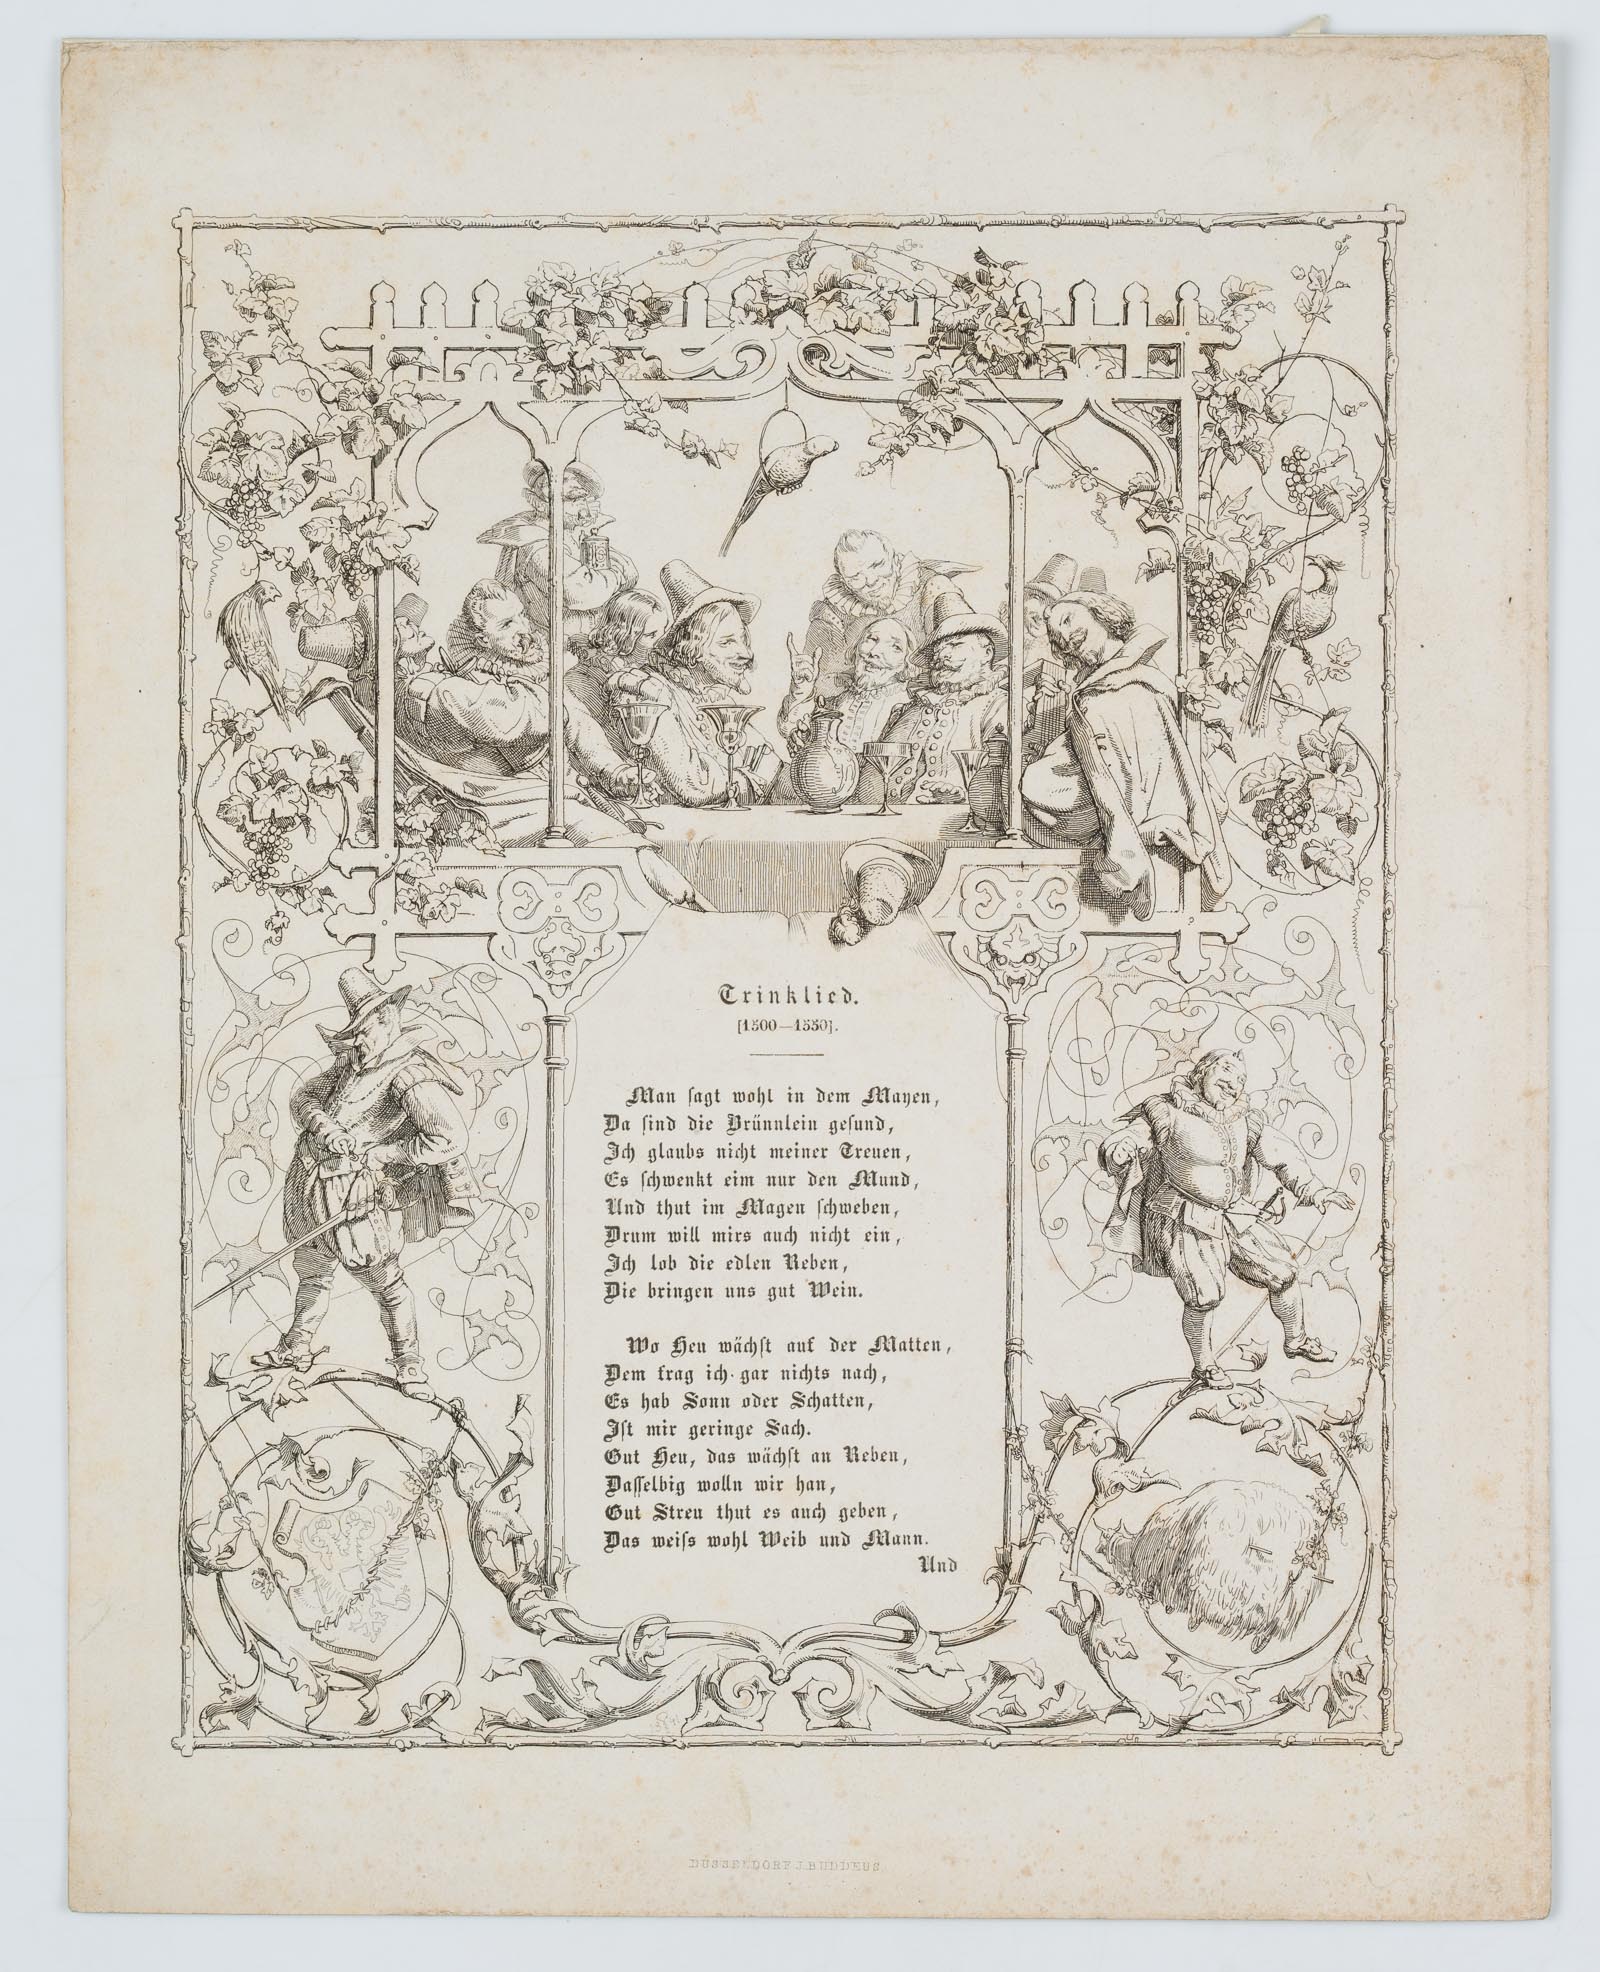 Trinklied.
[1500—1550].
Man ſagt wohl in dem Mayen,
Da ſind die Brünnlein geſund,
Ich glaubs nicht meiner Treuen,
Es ſchwenkt eim nur den Mund,
Und thut im Magen ſchweben,
Drum will mirs auch nicht ein,
Ich lob die edlen Reben,
Die bringen uns gut Wein.
Wo Heu wächſt auf der Matten,
Dem frag ich gar nichts nach,
Es hab Sonn oder Schatten,
Iſt mir geringe Sach.
Gut Heu, das wächſt an Reben,
Daſſelbig wolln wir han,
Gut Streu thut es auch geben,
Das weiſs wohl Weib und Mann.
Und
DÜSSELDORF J. BUDDEUS